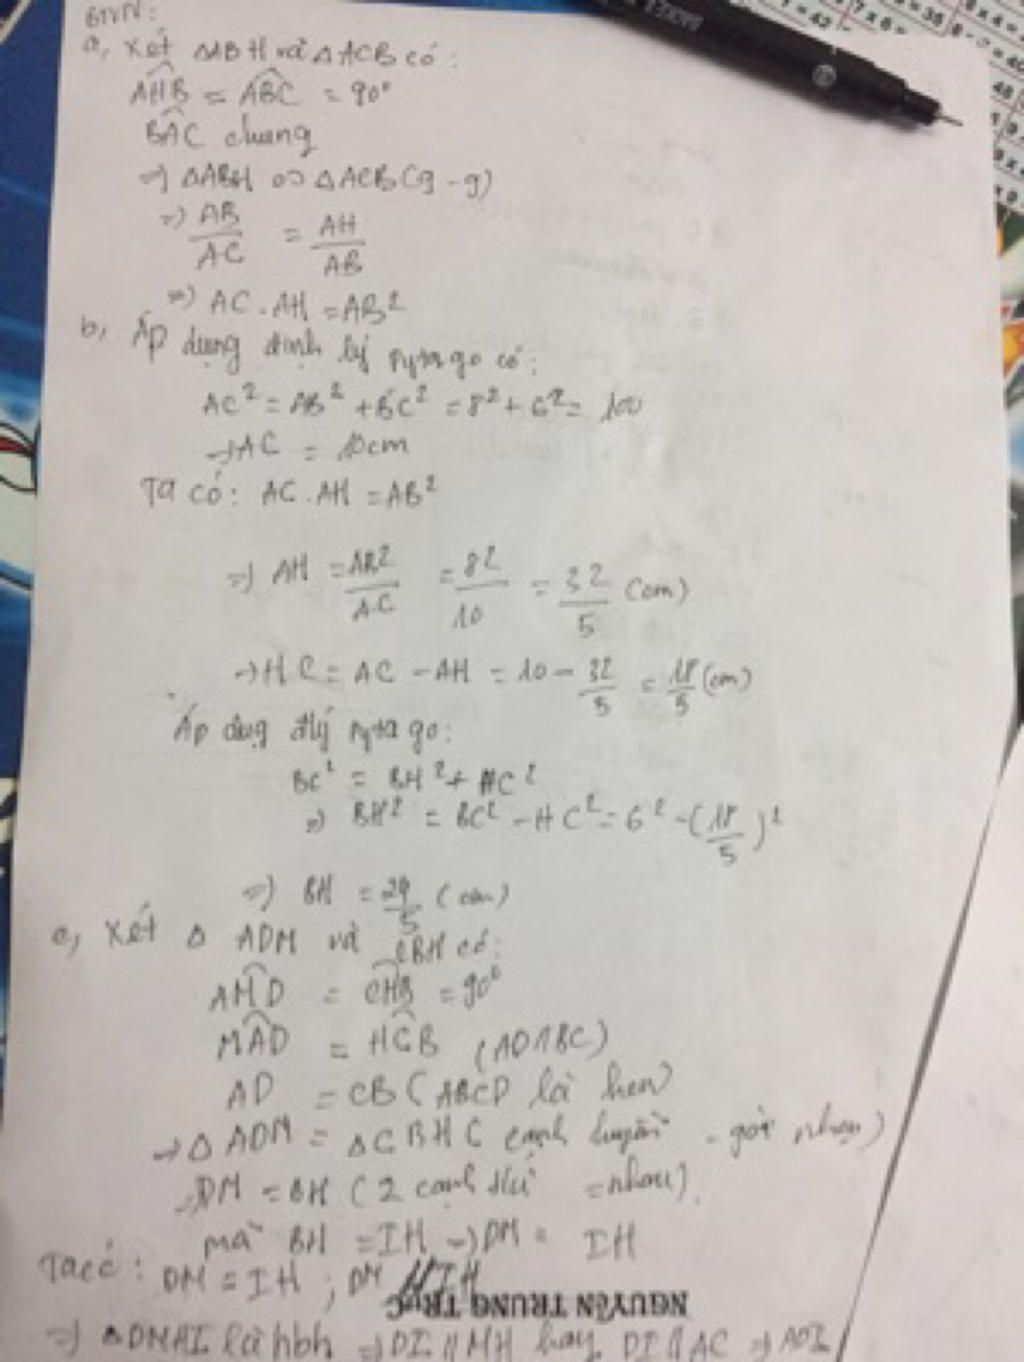 BTVN:
a, Xét ΔABH và ΔACB có:
AHB = ABC = 90°
BAC chung
=> ΔABH ∽ ΔACB (g-g)
=> AB/AC = AH/AB
=> AC.AH = AB²
b, Áp dụng định lý Pytago có:
AC² = AB² + BC² = 8² + 6² = 100
→ AC = 10cm
Ta có: AC.AH = AB²
=> AH = AB²/AC = 8²/10 = 32/5 (cm)
→ HC = AC - AH = 10 - 32/5 = 18/5 (cm)
Áp dụng đlý Pytago:
BC² = BH² + HC²
=> BH² = BC² - HC² = 6² - (18/5)²
=> BH = 24/5 (cm)
c, Xét Δ ADM và CBH có:
AMD = CHB = 90°
MAD = HCB (AD//BC)
AD = CB (ABCD là hcn)
→ Δ ADM = ΔCBH ( cạnh huyền - góc nhọn)
→ DM = BH (2 cạnh = nhau)
mà BH = IH → DM = IH
Ta có: DM = IH ; DM // IH
NGUYỄN TRUNG TRỰC
=> DMHI là hbh → DI // MH hay DI // AC →